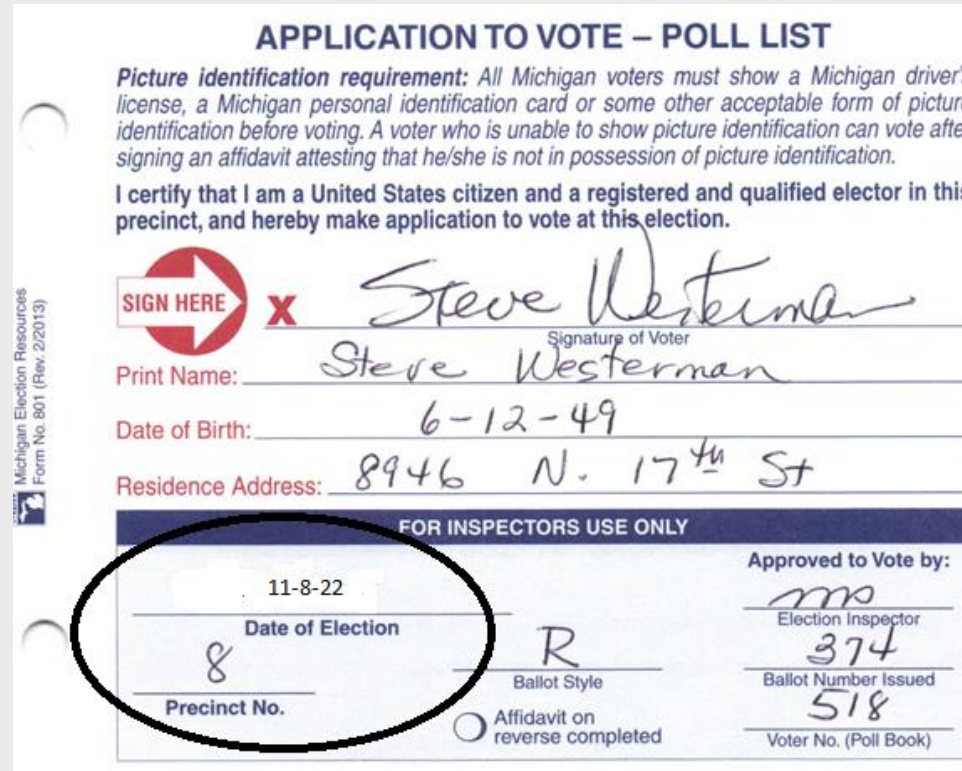 APPLICATION TO VOTE – POLL LIST
Picture identification requirement: All Michigan voters must show a Michigan driver'
license, a Michigan personal identification card or some other acceptable form of picture
identification before voting. A voter who is unable to show picture identification can vote afte
signing an affidavit attesting that he/she is not in possession of picture identification.
I certify that I am a United States citizen and a registered and qualified elector in this
precinct, and hereby make application to vote at this election.
SIGN HERE X Steve Westerman
Signature of Voter
Print Name: Steve Westerman
Date of Birth: 6-12-49
Residence Address: 8946 N. 17th St
Michigan Election Resources
Form No. 801 (Rev. 2/2013)
FOR INSPECTORS USE ONLY
11-8-22
Date of Election
8
Precinct No.
R
Ballot Style
Affidavit on
reverse completed
Approved to Vote by:
Election Inspector
374
Ballot Number Issued
518
Voter No. (Poll Book)